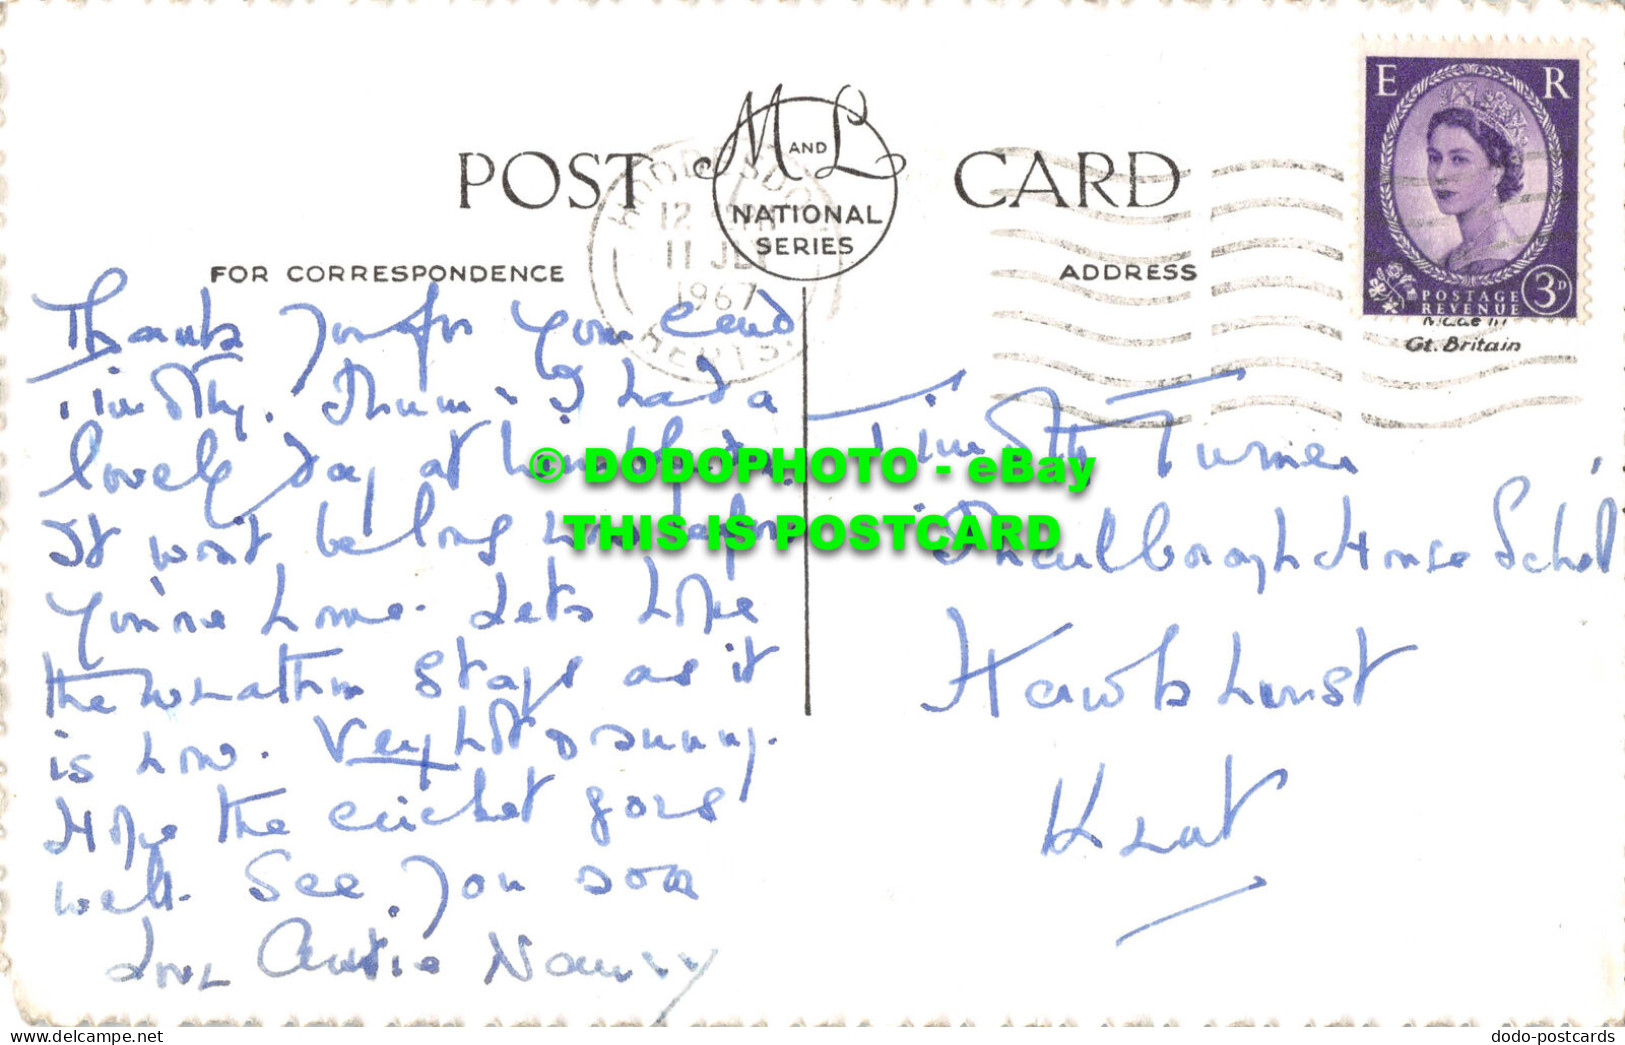 POST CARD
M AND L
NATIONAL
SERIES
HODDESDON
12
11 JLY
1967
HERTS.
E R
POSTAGE
REVENUE
3D
FOR CORRESPONDENCE
ADDRESS
Made in
Gt. Britain
Thank you for your card
Timothy. Mum & I had a
lovely day at
It wont be long now before
you're home. Lets hope
the weather stays as it
is now. Very hot & sunny.
Hope the cricket goes
well. See you soon
Love Auntie Nancy
Timothy Turner
Marlborough House School
Hawkhurst
Kent
© DODOPHOTO - eBay
THIS IS POSTCARD
delcampe.net
dodo-postcards